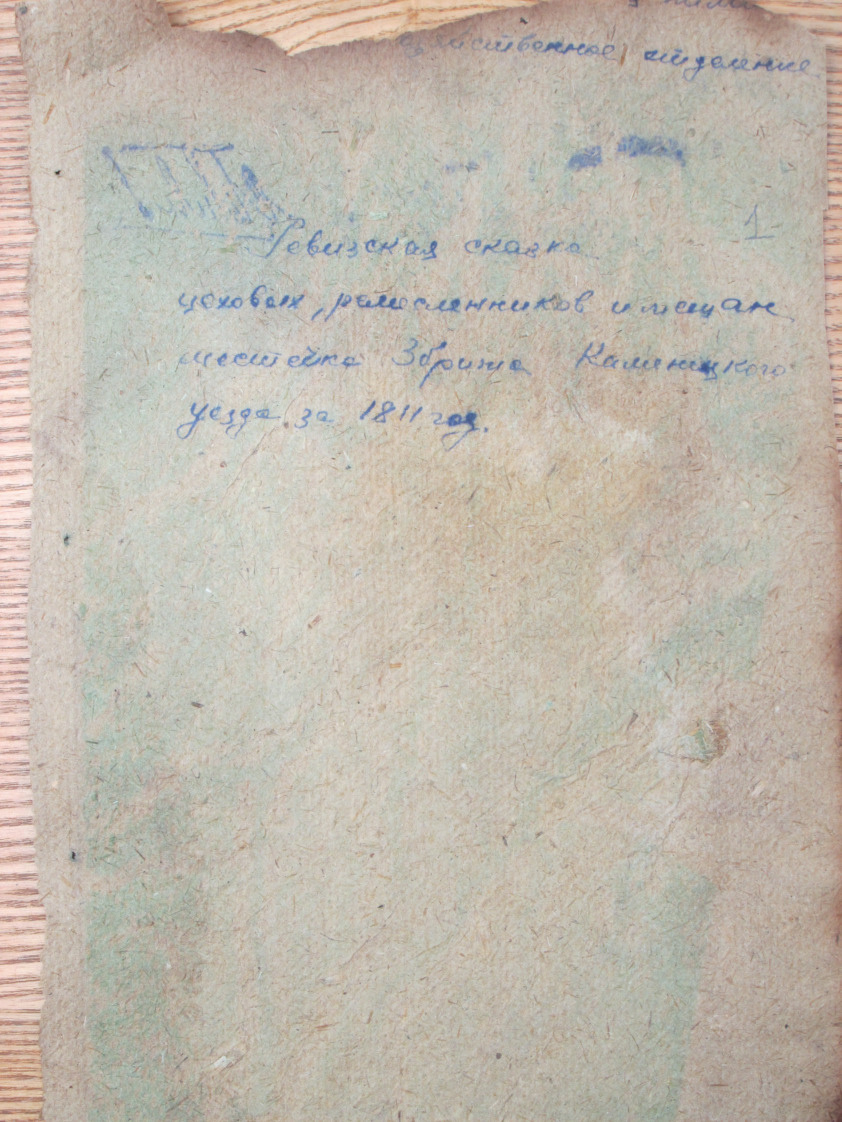 отделение
1
Ревизская сказка
цеховых, ремесленников и мещан
местечка Збрижа Каменецкого
уезда за 1811 год.